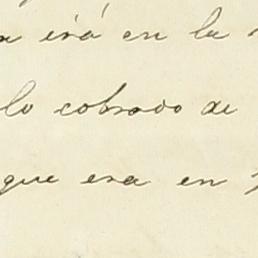 irá en la
lo cobrado de
que era en